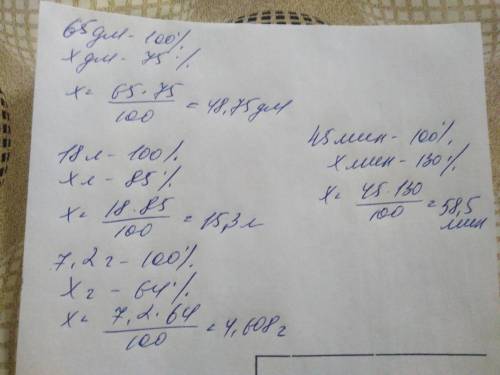 65 дм - 100%
х дм - 75 %
х = 65 · 75 / 100 = 48,75 дм
18 л - 100%
х л - 85%
х = 18 · 85 / 100 = 15,3 л
7,2 г - 100%
х г - 64%
х = 7,2 · 64 / 100 = 4,608 г
45 мин - 100%
х мин - 130%
х = 45 · 130 / 100 = 58,5 мин